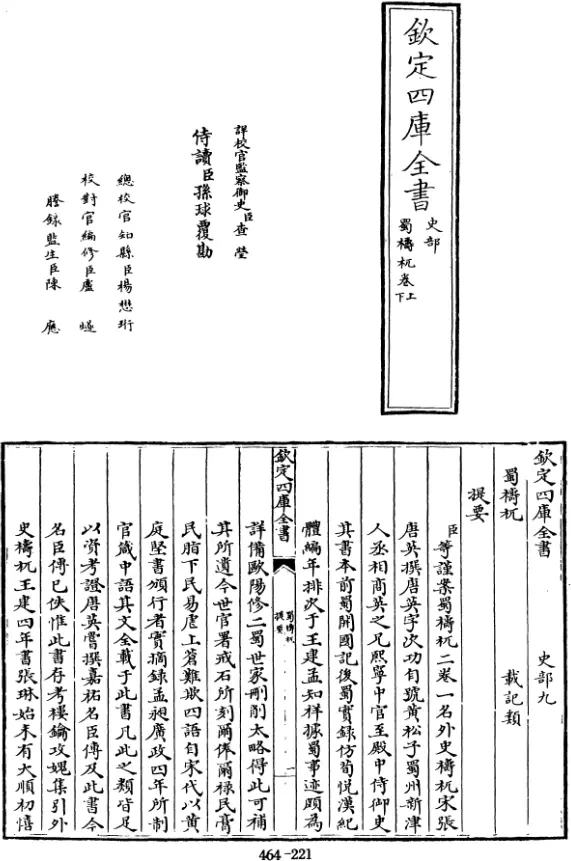 欽定四庫全書
史部
蜀檮杌卷
上
下
詳校官監察御史臣查瑩
侍讀臣孫球覆勘
總校官知縣臣楊懋珩
校對官編修臣盧遂
謄錄監生臣陳應
欽定四庫全書 史部九
蜀檮杌 載記類
提要
臣等謹案蜀檮杌二卷一名外史檮杌宋張
唐英撰唐英字次功自號黃松子蜀州新津
人丞相商英之兄熙寧中官至殿中侍御史
其書本前蜀開國記後蜀實録仿荀悅漢紀
體編年排次于王建孟知祥據蜀事迹頗為
欽定四庫全書
蜀檮杌
提要
一
詳備歐陽修二蜀世家刪削太略得此可補
其所遺今世官署戒石所刻爾俸爾禄民膏
民脂下民易虐上蒼難欺四語自宋代以黃
庭堅書頒行者實摘録孟昶廣政四年所制
官箴中語其文全載于此書凡此之類皆足
以資考證唐英嘗撰嘉祐名臣傳及此書今
名臣傳已佚惟此書存考樓鑰攻媿集引外
史檮杌王建四年書張琳始末有大順初僖
464-221